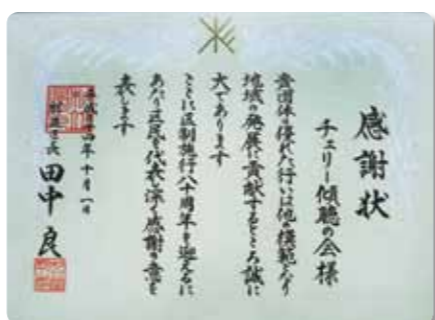 感謝状
チェリー傾聴の会様
貴団体の優れた行いは他の模範となり
地域の発展に貢献するところ誠に
大であります
ここに区制施行八十周年を迎えるに
あたり区民を代表し深く感謝の意を
表します
平成二十四年十月一日
杉並区長 田中良